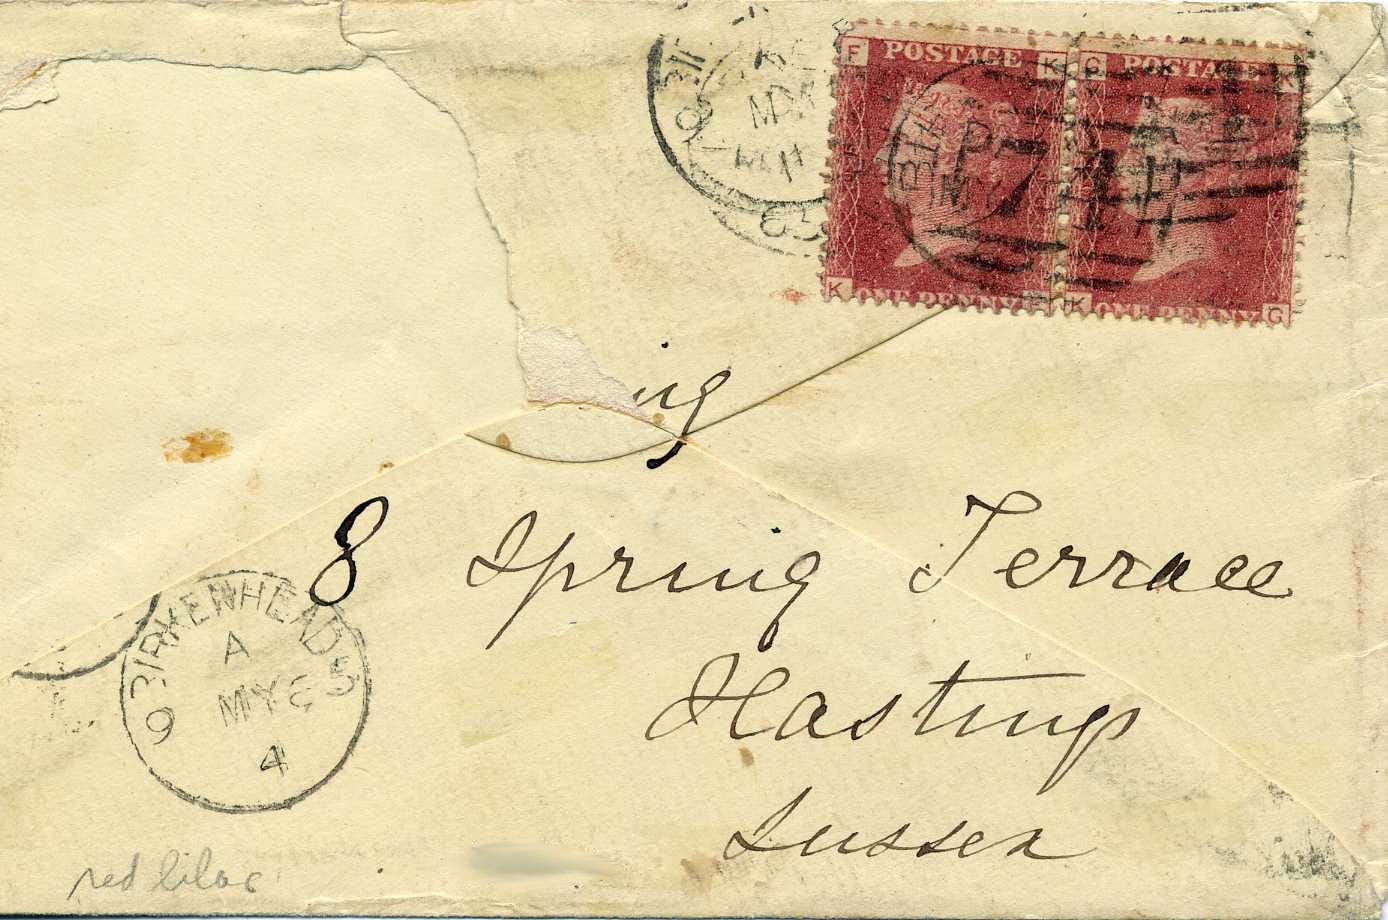 F POSTAGE K
G POSTAGE K
74
K ONE PENNY F
K ONE PENNY G
ng
8 Spring Terrace
Hastings
Sussex
BIRKENHEAD
A
MY 6
4
red lilac